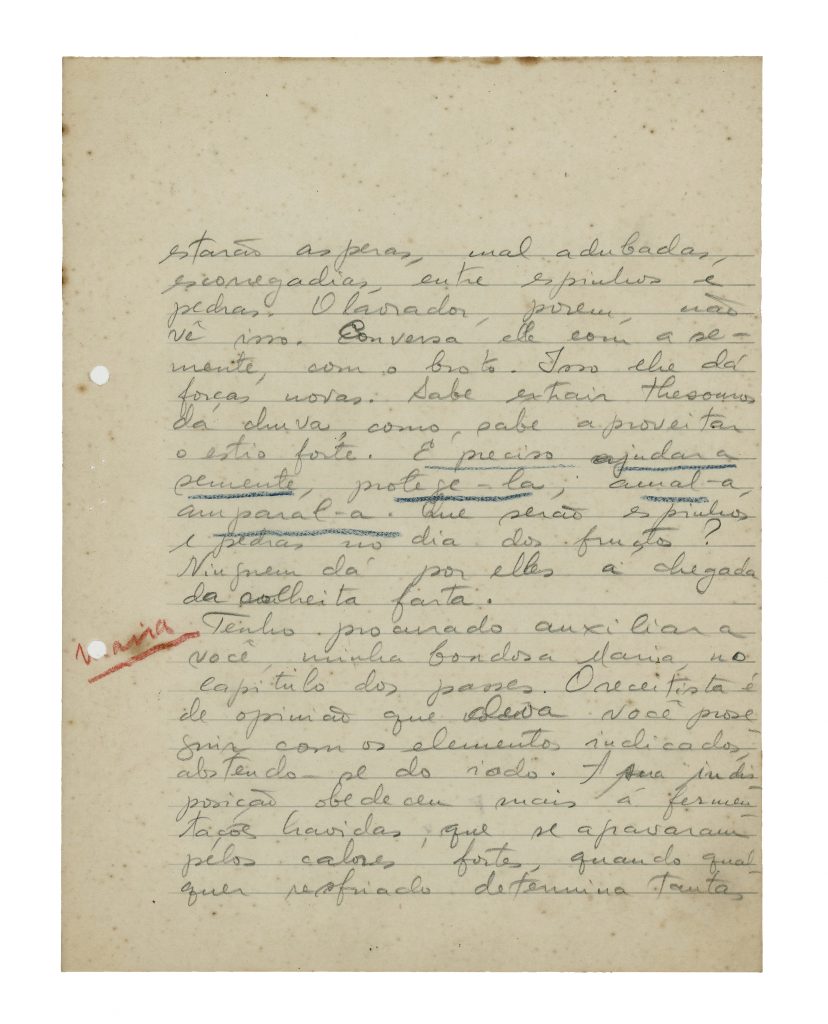 estarão asperas, mal adubadas,
escorregadias, entre espinhos e
pedras. O lavrador, porem, não
vê isso. Conversa elle com a se-
mente, com o broto. Isso lhe dá
forças novas. Sabe extrair thesouros
da chuva, como, sabe aproveitar
o estio forte. É preciso ajudar a
semente, protege-la, amal-a,
amparal-a. Que serão espinhos
e pedras no dia dos fructos?
Ninguem dá por elles a chegada
da colheita farta.
Maria
Tenho procurado auxiliar a
você, minha bondosa Maria, no
capitulo dos passes. O receitista é
de opinião que deva você prose
guir com os elementos indicados,
abstendo-se do iodo. A sua indis
posição obedeceu mais á fermen-
tações havidas, que se agravaram
pelos calores fortes, quando qual-
quer resfriado determina tantas